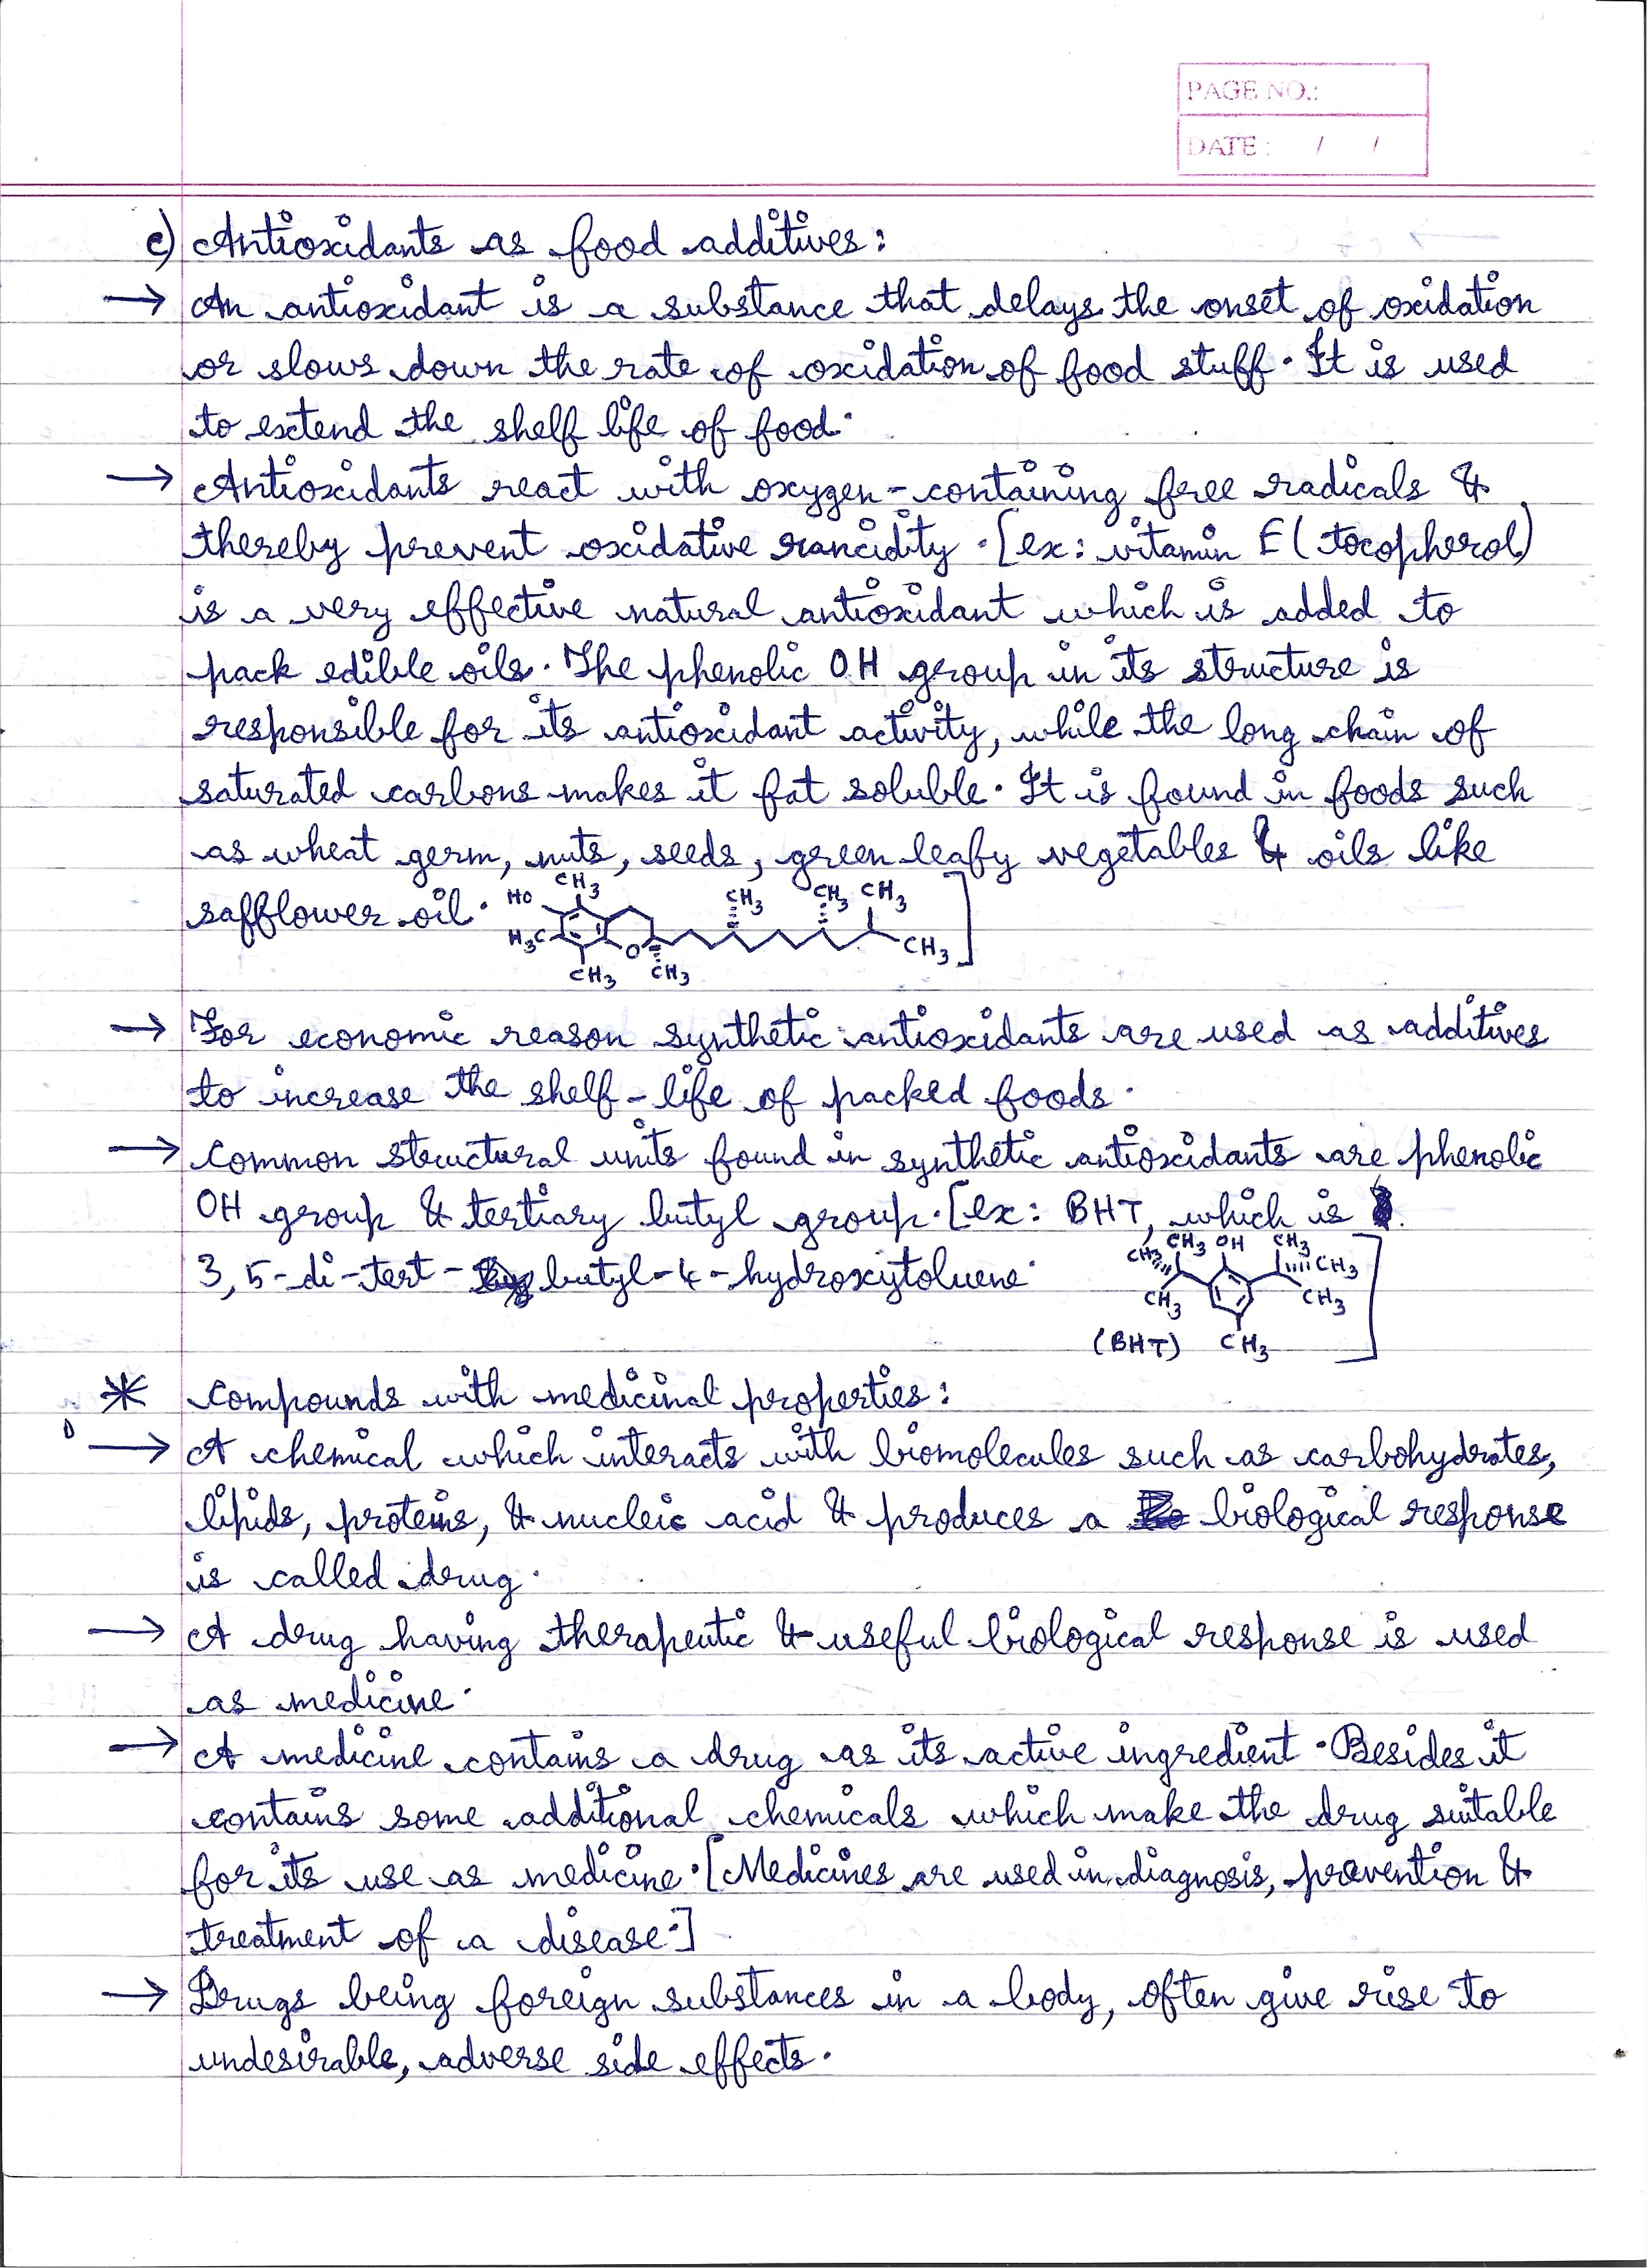 PAGE NO.:
DATE: / /
c) Antioxidants as food additives:
→ An antioxidant is a substance that delays the onset of oxidation
or slows down the rate of oxidation of food stuff. It is used
to extend the shelf life of food.
→ Antioxidants react with oxygen-containing free radicals &
thereby prevent oxidative rancidity. [ex: vitamin E (tocopherol)
is a very effective natural antioxidant which is added to
pack edible oils. The phenolic OH group in its structure is
responsible for its antioxidant activity, while the long chain of
saturated carbons makes it fat soluble. It is found in foods such
as wheat germ, nuts, seeds, green leafy vegetables & oils like
safflower oil. HO CH3 H3C CH3 O CH3 CH3 CH3 CH3 CH3 ]
→ For economic reason synthetic antioxidants are used as additives
to increase the shelf-life of packed foods.
→ Common structural units found in synthetic antioxidants are phenolic
OH group & tertiary butyl group. [ex: BHT, which is
3,5-di-tert-butyl-4-hydroxytoluene.
CH3 CH3 OH CH3 CH3
CH3 CH3
(BHT) CH3 ]
* Compounds with medicinal properties:
→ A chemical which interacts with biomolecules such as carbohydrates,
lipids, proteins, & nucleic acid & produces a biological response
is called drug.
→ A drug having therapeutic & useful biological response is used
as medicine.
→ A medicine contains a drug as its active ingredient. Besides it
contains some additional chemicals which make the drug suitable
for its use as medicine. [Medicines are used in diagnosis, prevention &
treatment of a disease.]
→ Drugs being foreign substances in a body, often give rise to
undesirable, adverse side effects.